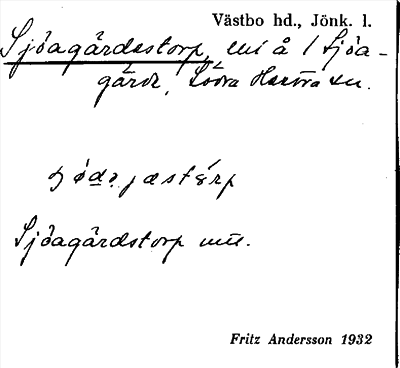 Västbo hd., Jönk. l.
Sjöagärdestorp, å / Sjöa-
gärde, Södra Hestra sn.
Sjöagärdstorp
Fritz Andersson 1932